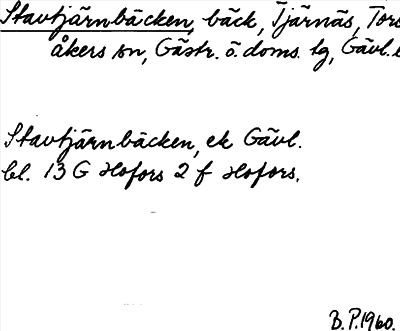 Stavtjärnbäcken, bäck, Tjärnäs, Tors
åkers sn, Gästr. ö. doms. lg, Gävl. l
Stavtjärnbäcken, ek Gävl.
bl. 13 G Hofors 2 f Hofors.
B.P. 1960.